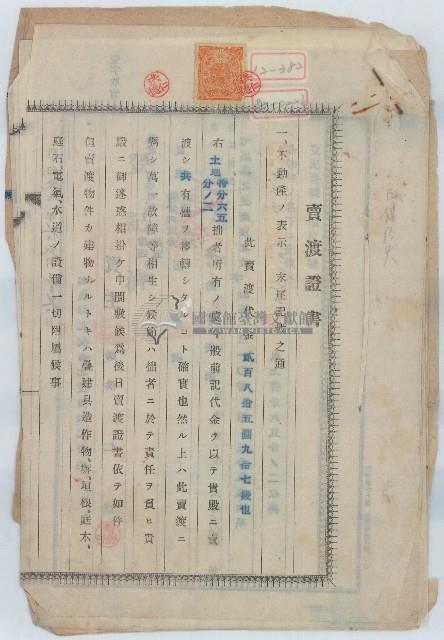 賣渡證書
一、不動產ノ表示 末尾記載之通
此賣渡代金 貳百八拾五圓九拾七錢也
右 土地持分六五分ノ二 拙者所有ノ處今般前記代金ヲ以テ貴殿ニ賣
渡シ共有權ヲ移轉シタルコト確實也然ル上ハ此賣渡ニ
關シ萬一故障等相生シ候節ハ拙者ニ於テ責任ヲ負ヒ貴
殿ニ御迷惑相掛ケ申間敷候爲後日賣渡證書依テ如件
但賣渡物件カ建物ナルトキハ疊建具造作物、塀、垣根、庭木、
庭石、電氣、水道ノ設備一切附屬候事
12-382
國史館臺灣文獻館
TAIWAN HISTORICA